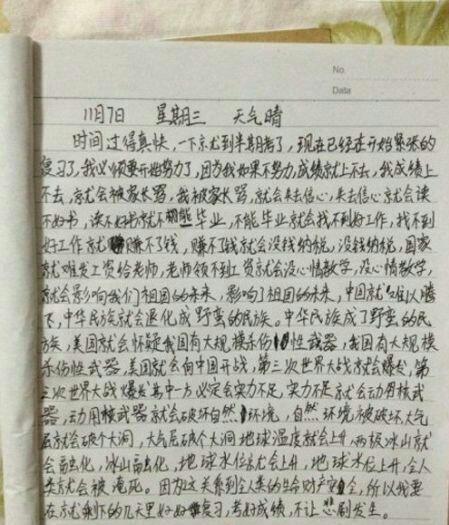 No.
Data
11月7日 星期三 天气晴
时间过得真快，一下就到半期考了，现在已经在开始紧张的
复习了，我必须要开始努力了，因为我如果不努力，成绩就上不去，我成绩上
不去，就会被家长骂，我被家长骂，就会失去信心，失去信心就会读
不好书，读不好书就不能毕业，不能毕业就会找不到好工作，找不到
好工作就赚不了钱，赚不了钱就会没钱纳税，没钱纳税，国家
就难发工资给老师，老师领不到工资就会没心情教学，没心情教学，
就会影响我们祖国的未来，影响了祖国的未来，中国就难以腾
飞，中华民族就会退化成野蛮的民族。中华民族成了野蛮的民
族，美国就会怀疑我国有大规模杀伤性武器，我国有大规模
杀伤性武器，美国就会向中国开战，第三次世界大战就会爆发，第
三次世界大战爆发其中一方必定会实力不足，实力不足就会动用核武
器，动用核武器就会破坏自然环境，自然环境被破坏，大气
层就会破个大洞，大气层破个大洞地球温度就会上升，两极冰山就
会融化，冰山融化，地球水位就会上升，地球水位上升，全人
类就会被淹死。因为这关系到全人类的生命财产安全，所以我要
在就剩下的几天里好好复习，考好成绩，不让悲剧发生。